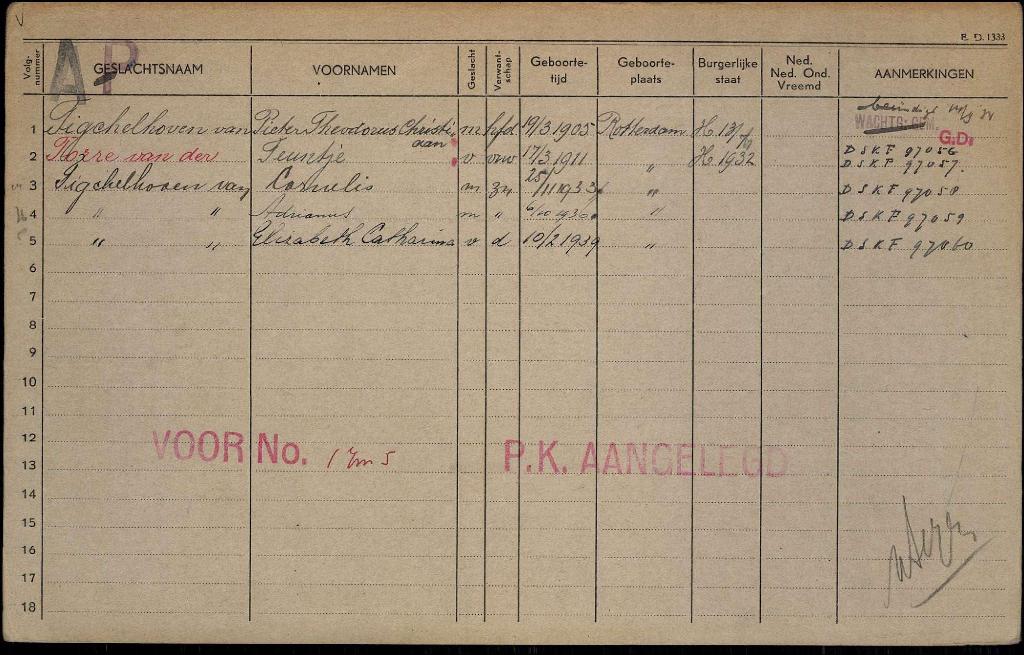 V
E. D. 1333
A P
Volgnummer GESLACHTSNAAM VOORNAMEN Geslacht Verwantschap Geboortetijd Geboorteplaats Burgerlijke staat Ned. Ned. Ond. Vreemd AANMERKINGEN
WACHTG: GEM.
G.D.
1 Tigchelhoven van Pieter Theodorus Christiaan m hfd 19/3.1905 Rotterdam H.
2 van der Teuntje v vrw 17/3.1911 " H. 1932 DSKF 97056
DSKF 97057.
3 Tigchelhoven van Cornelis m zn 25/11 193 " DSKF 97058
4 " " Adrianus m " " DSKF 97059
5 " " Elisabeth Catharina v d 10/2 1939 " DSKF 97060
6
7
8
9
10
11
12
VOOR No. 1 t/m 5 P.K. AANGELEGD
13
14
15
16
17
18